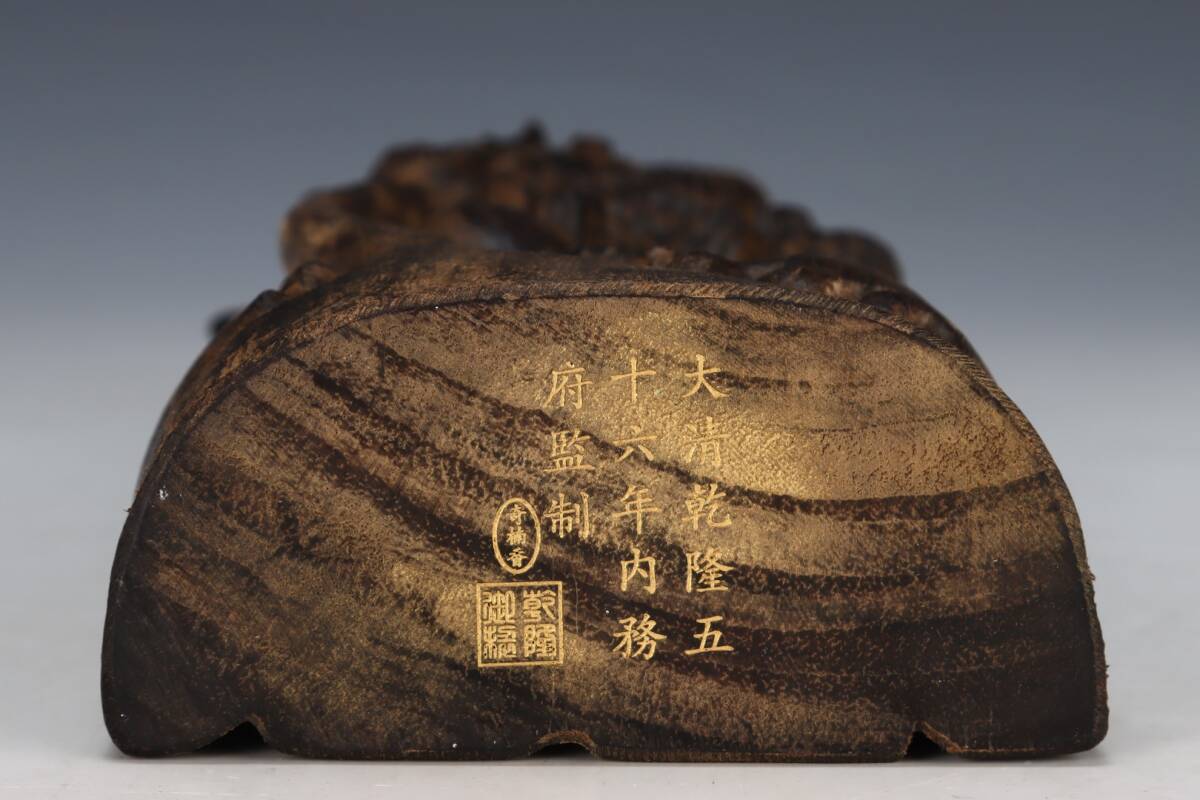 大清乾隆五
十六年内務
府監制
奇楠香
乾隆
御物